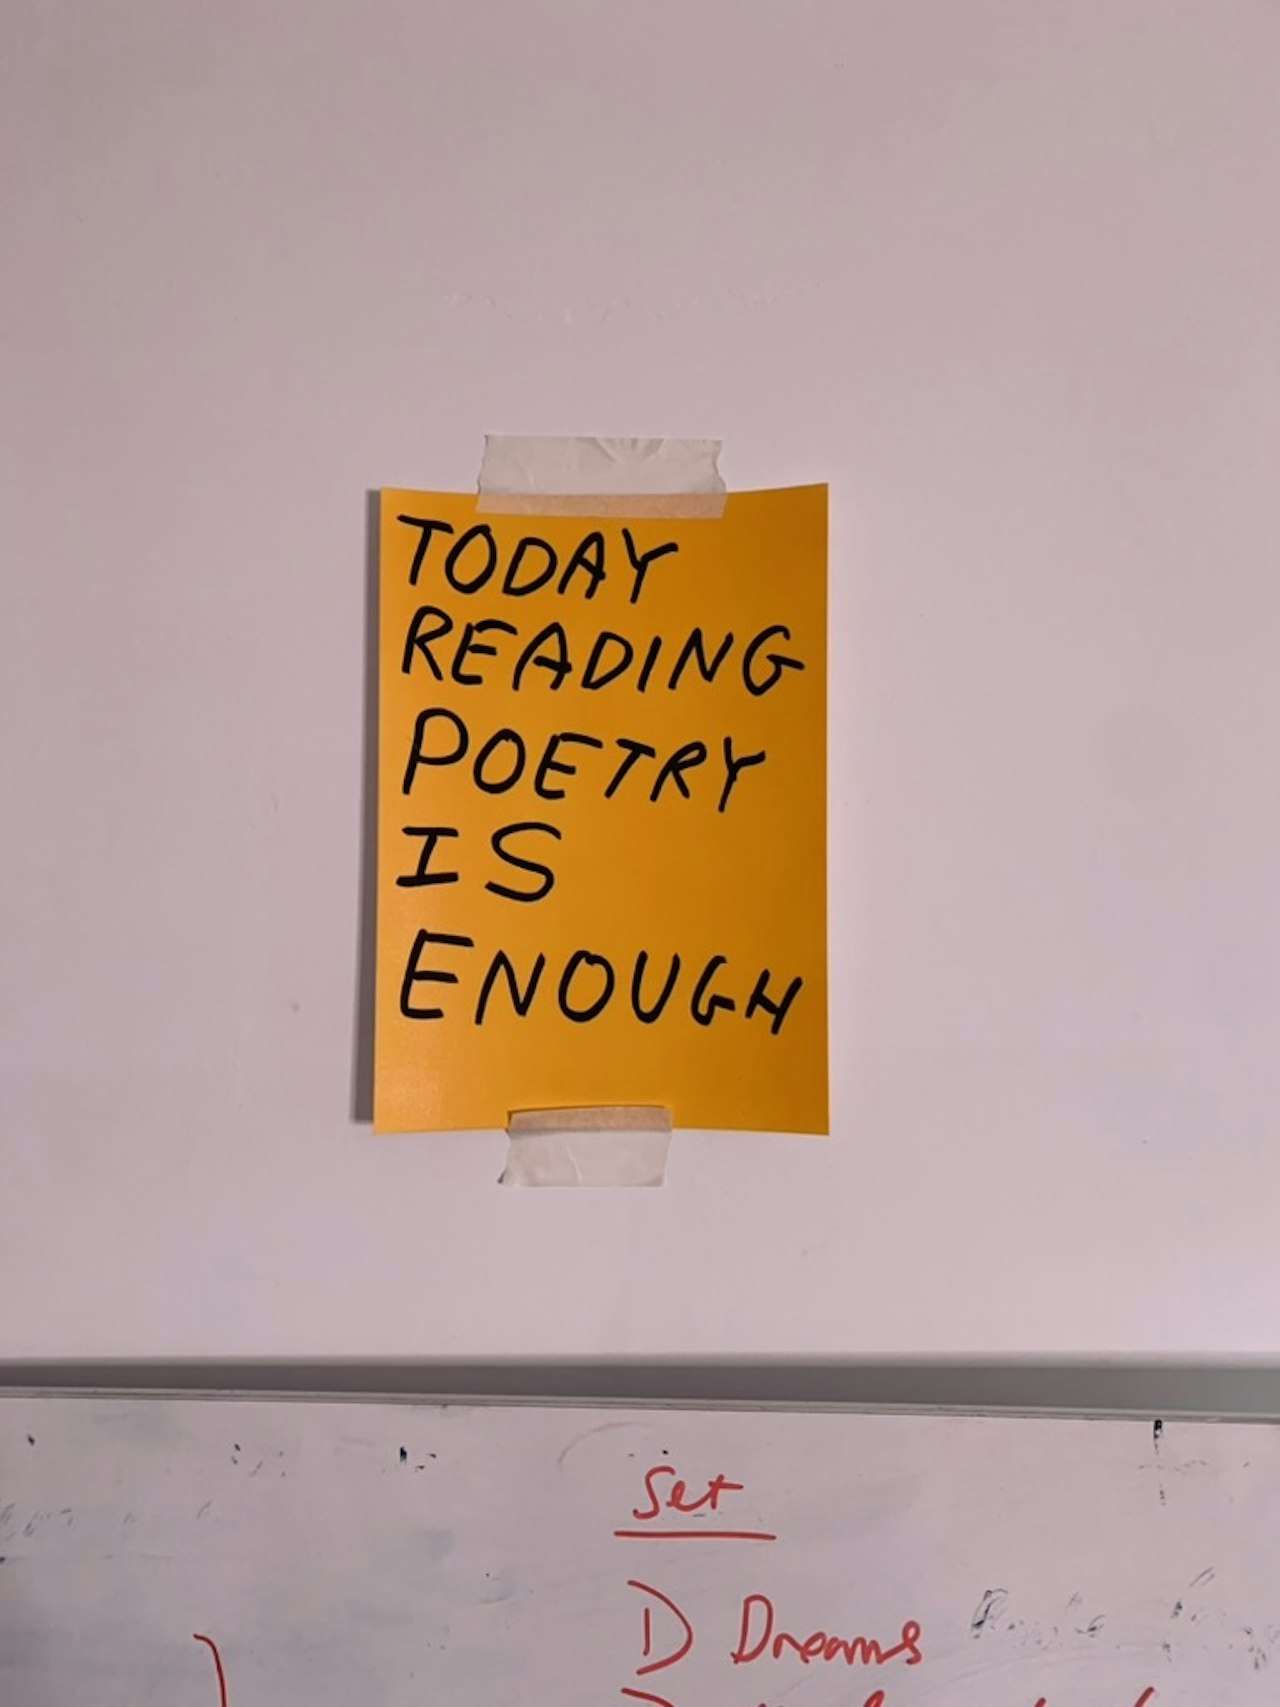 TODAY
READING
POETRY
IS
ENOUGH
Set
1) Dreams